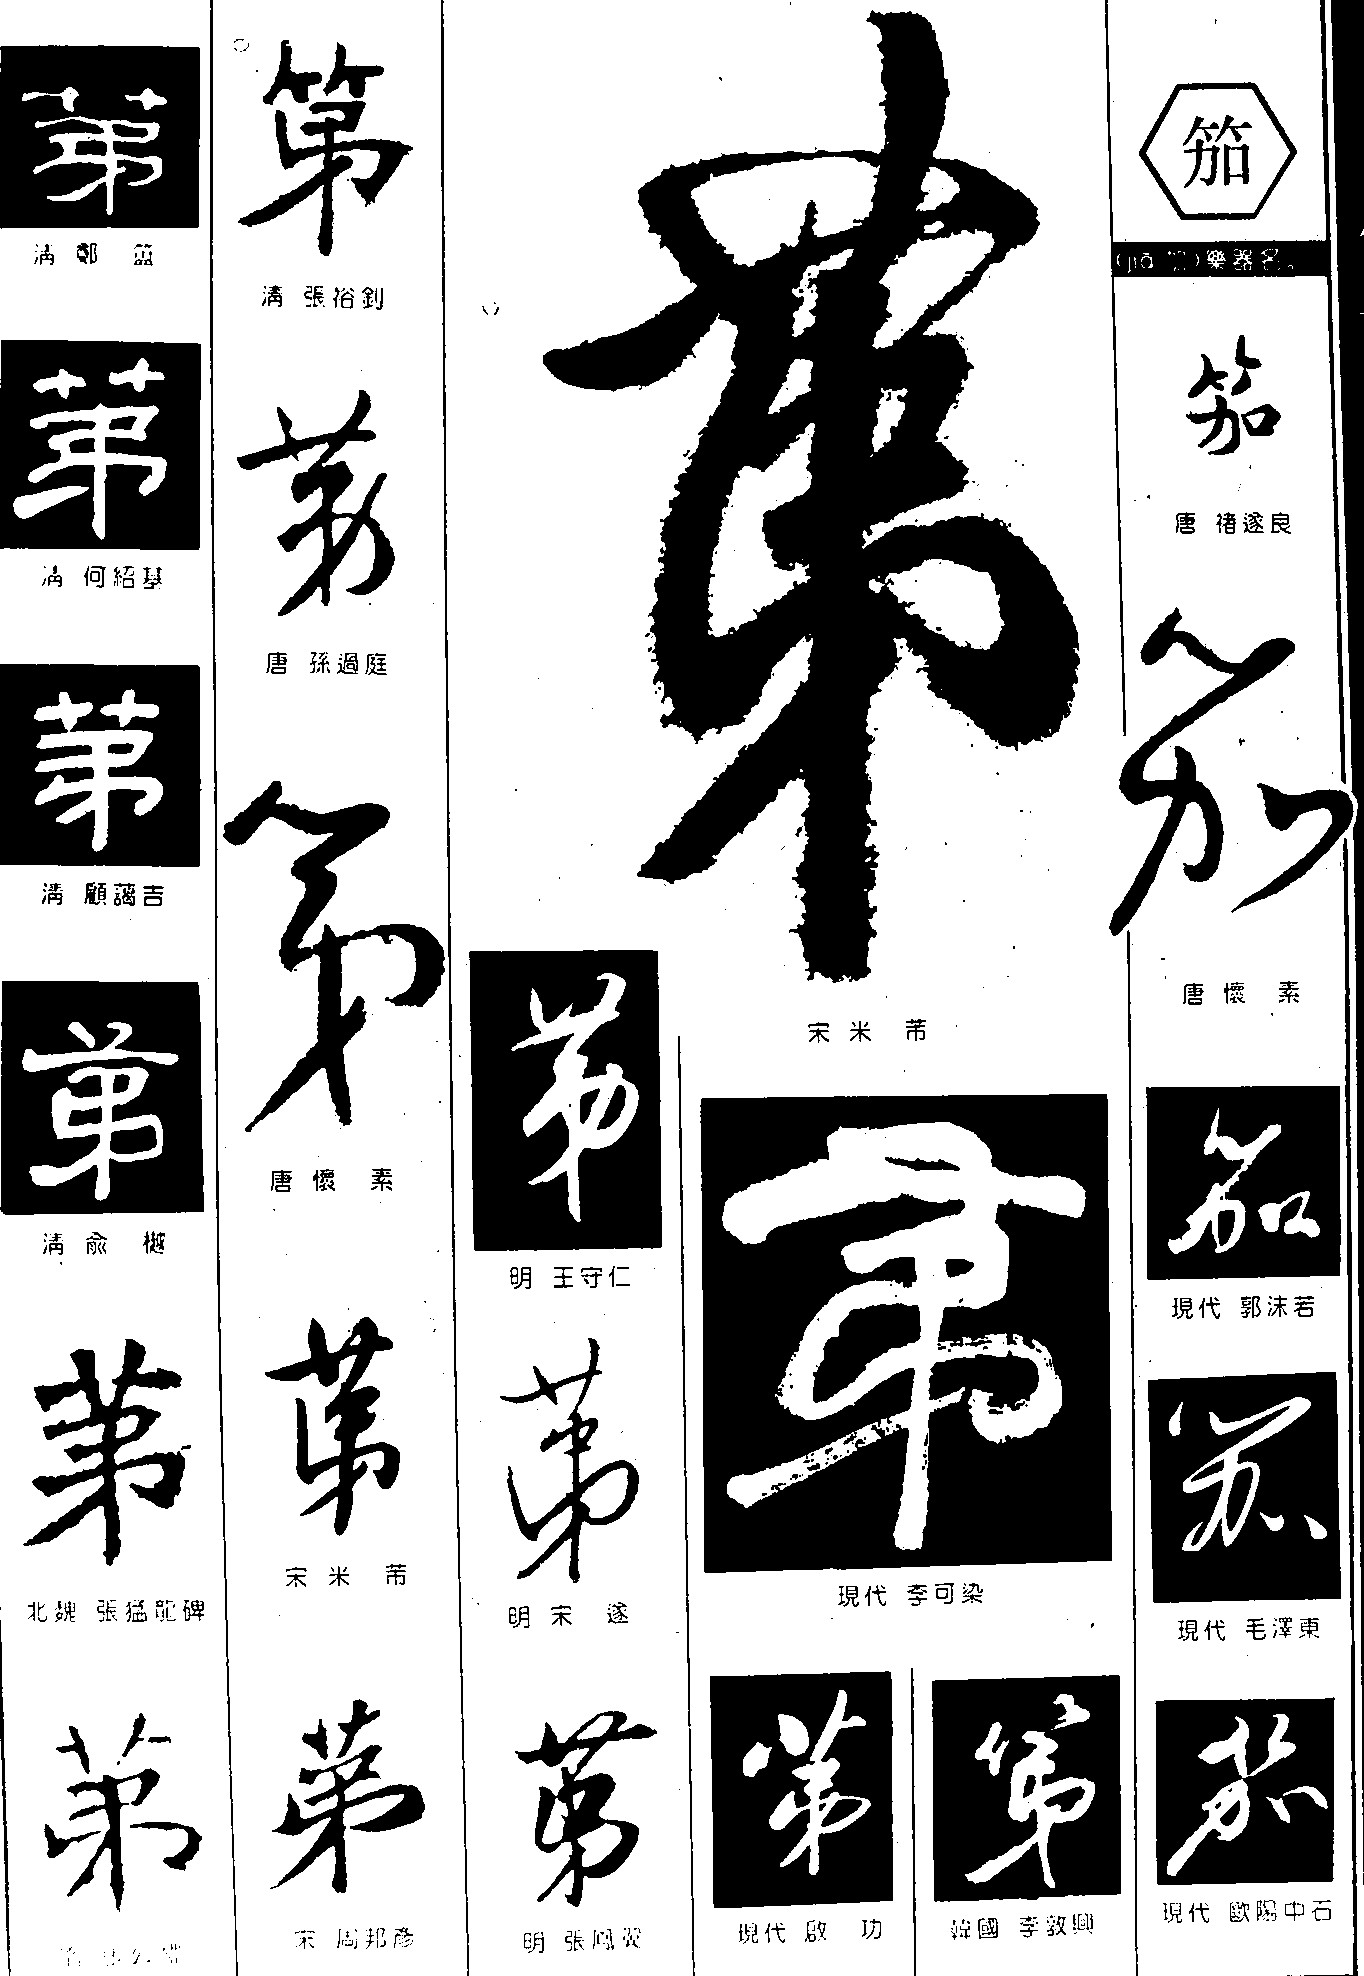 笳
(jiā 加)樂器名。
笳
唐 褚遂良
笳
唐 懷 素
笳
現代 郭沫若
笳
現代 毛澤東
笳
現代 歐陽中石
第
宋 米 芾
第
現代 李可染
第
現代 啟 功
第
韓國 李敦興
第
明 王守仁
第
明 宋 遂
第
明 張鳳翼
第
清 張裕釗
第
唐 孫過庭
第
唐 懷 素
第
宋 米 芾
第
宋 周邦彦
第
清 鄭 簠
第
清 何紹基
第
清 顧藹吉
第
清 俞 樾
第
北魏 張猛龍碑
第